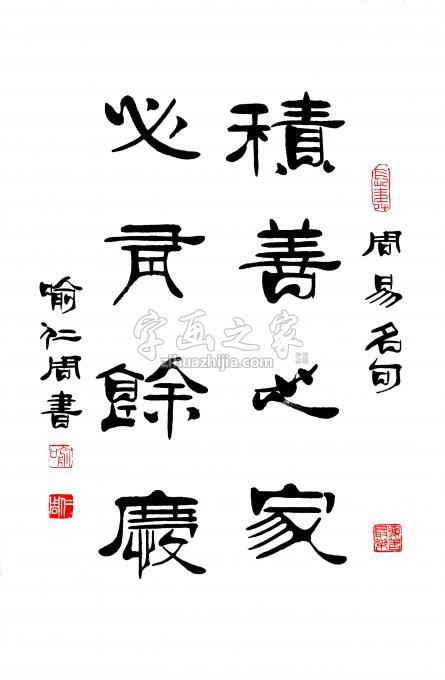 周易名句
積善之家
必有餘慶
喻仁周書
字画之家
zihuazhijia.com